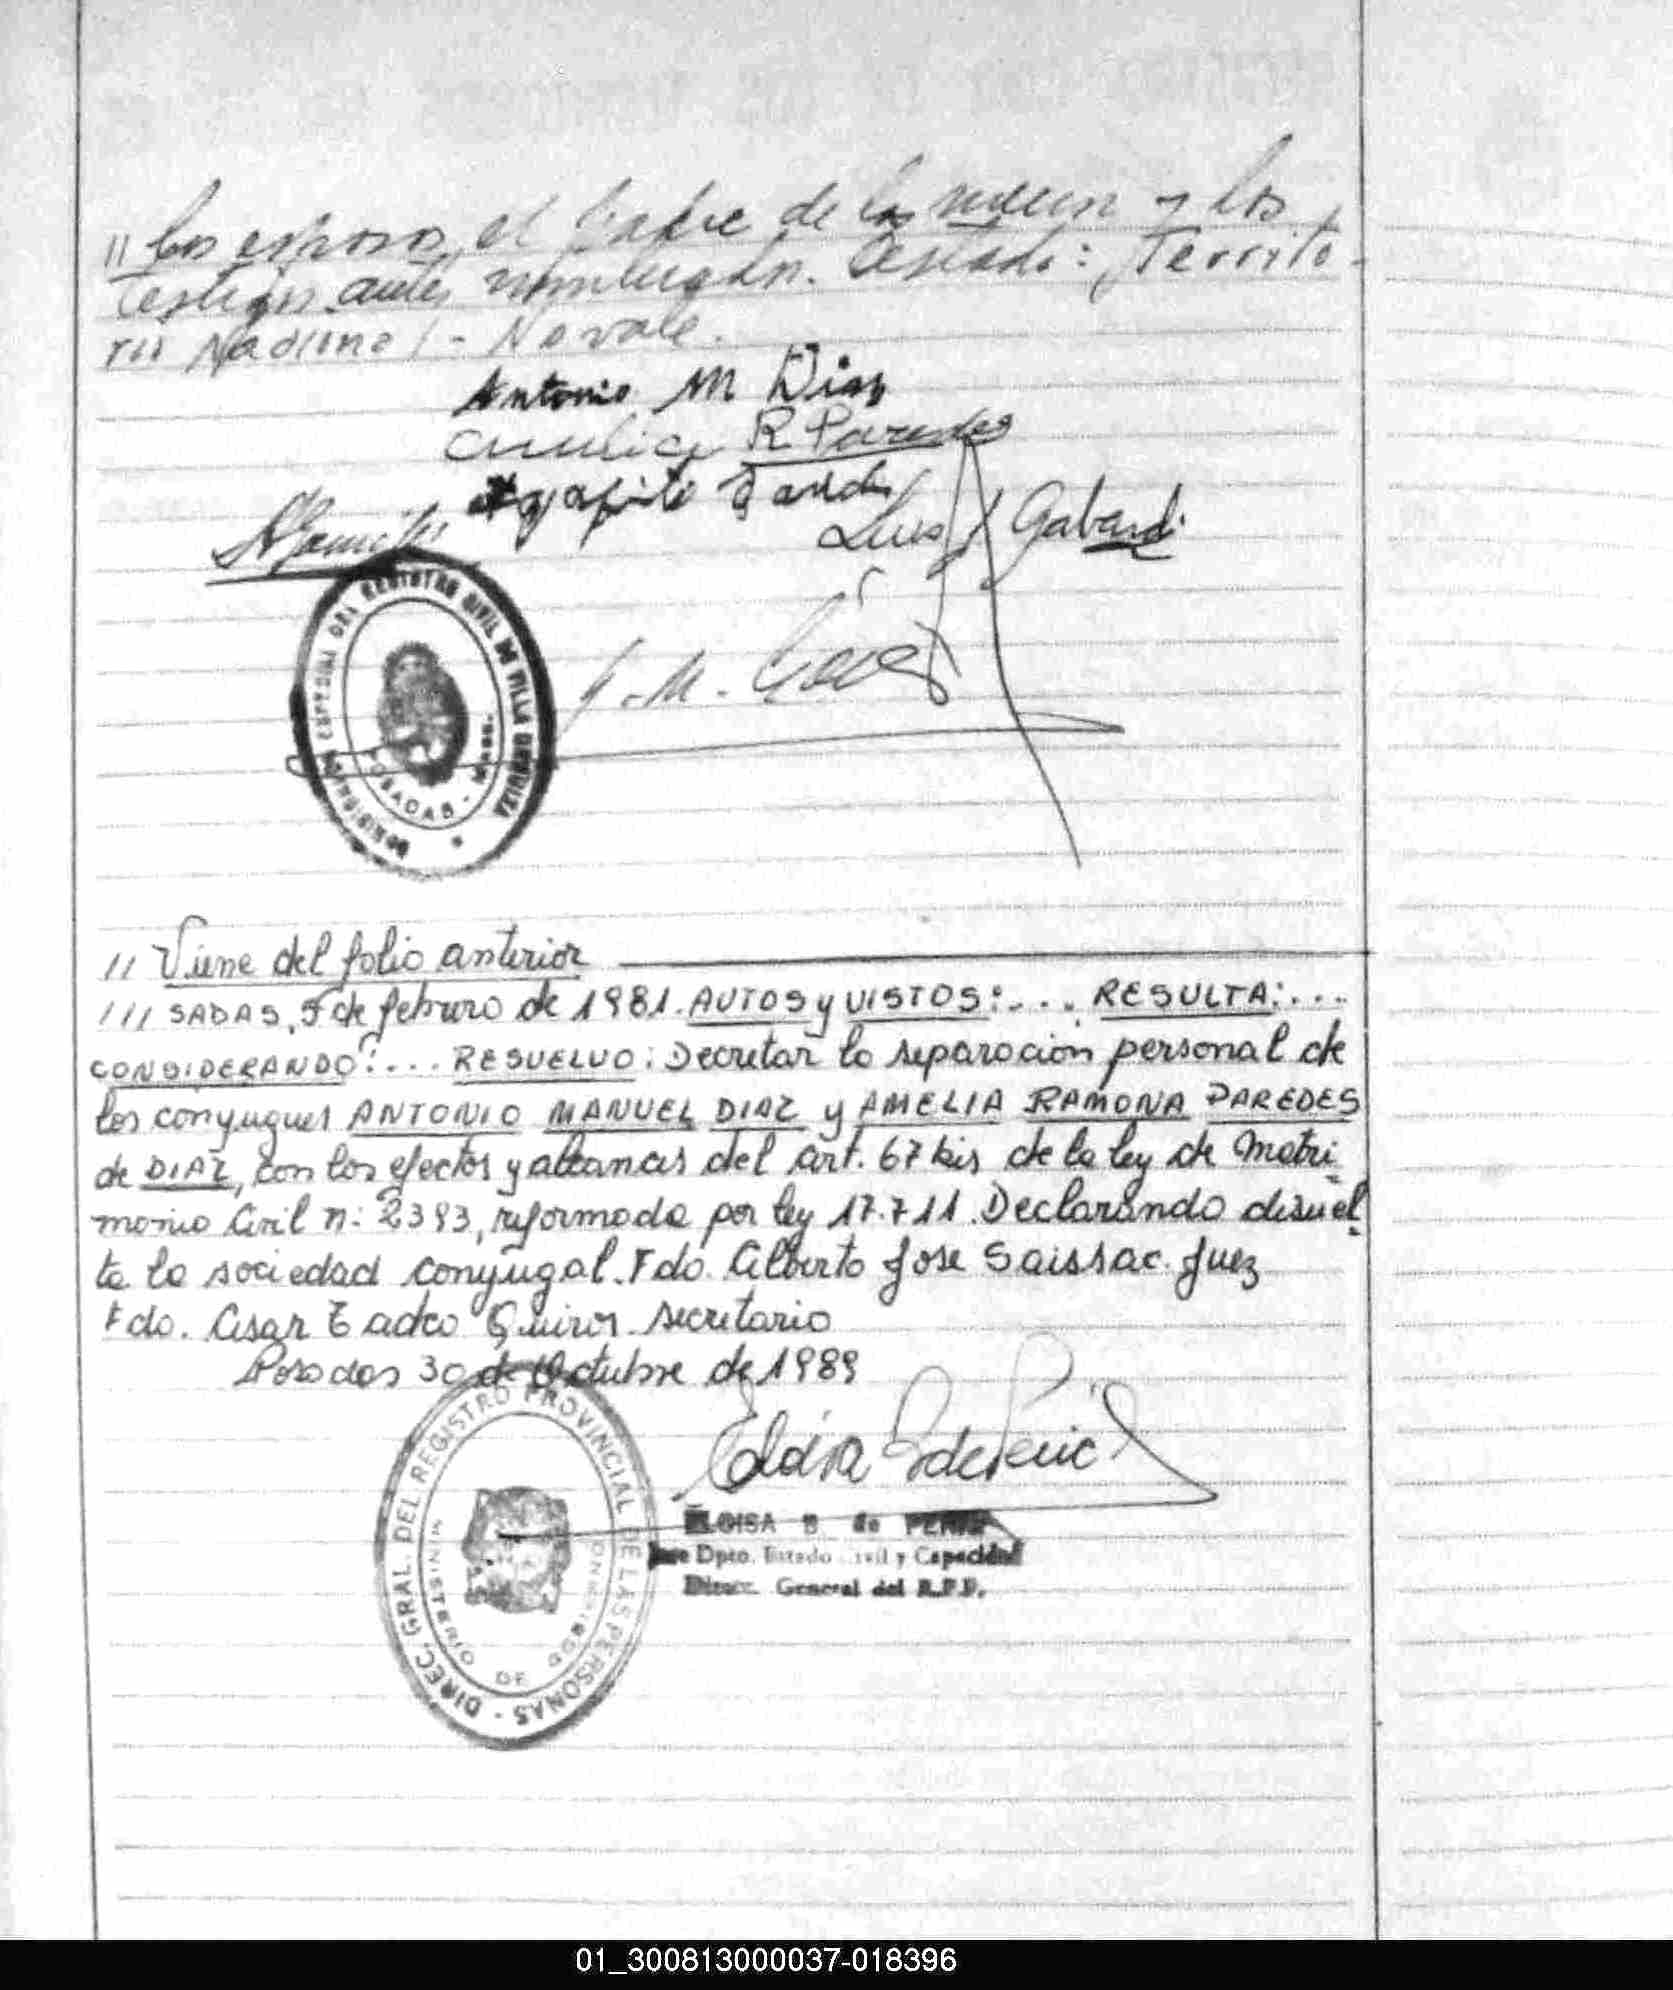 // los esposos, el padre de la menor y los
testigos antes nombrados. Testado: Territo-
rio Nacional - No vale.
Antonio M Diaz
Amelia R Paredes
Agapito
Luis Gabardi
G. M.
REGISTRO CIVIL DE VILLA URQUIZA
POSADAS - Mnes.
// Viene del folio anterior
/// SADAS, 5 de febrero de 1981. AUTOS y VISTOS:... RESULTA:...
CONSIDERANDO:... RESUELVO: Decretar la separacion personal de
los conyugues ANTONIO MANUEL DIAZ y AMELIA RAMONA PAREDES
de DIAZ, con los efectos y alcances del art. 67 bis de la ley de Matri
monio Civil n: 2393, reformada por ley 17.711. Declarando disuel
ta la sociedad conyugal. Fdo. Alberto Jose Saissac. Juez
Fdo. Cesar Tadeo Quiros. Secretario
Posadas 30 de Octubre de 1989
DIREC. GRAL. DEL REGISTRO PROVINCIAL DE LAS PERSONAS -
MINISTERIO DE GOBIERNO
ELOISA B de
Jefe Dpto. Estado Civil y Capacidad
Direcc. General del R.P.P.
01_300813000037-018396